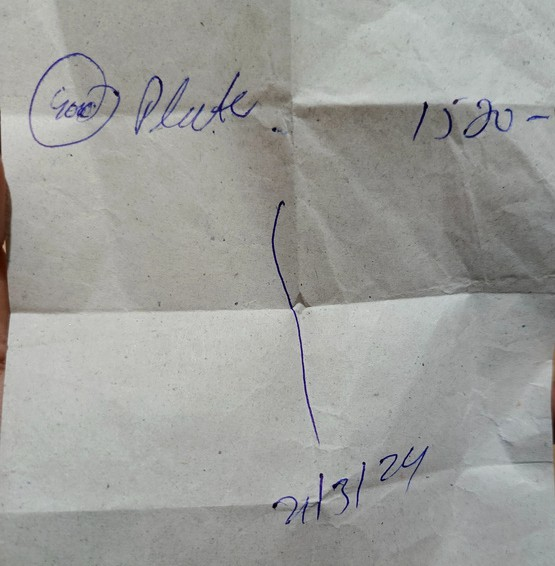 Plate 1520-
21/3/24